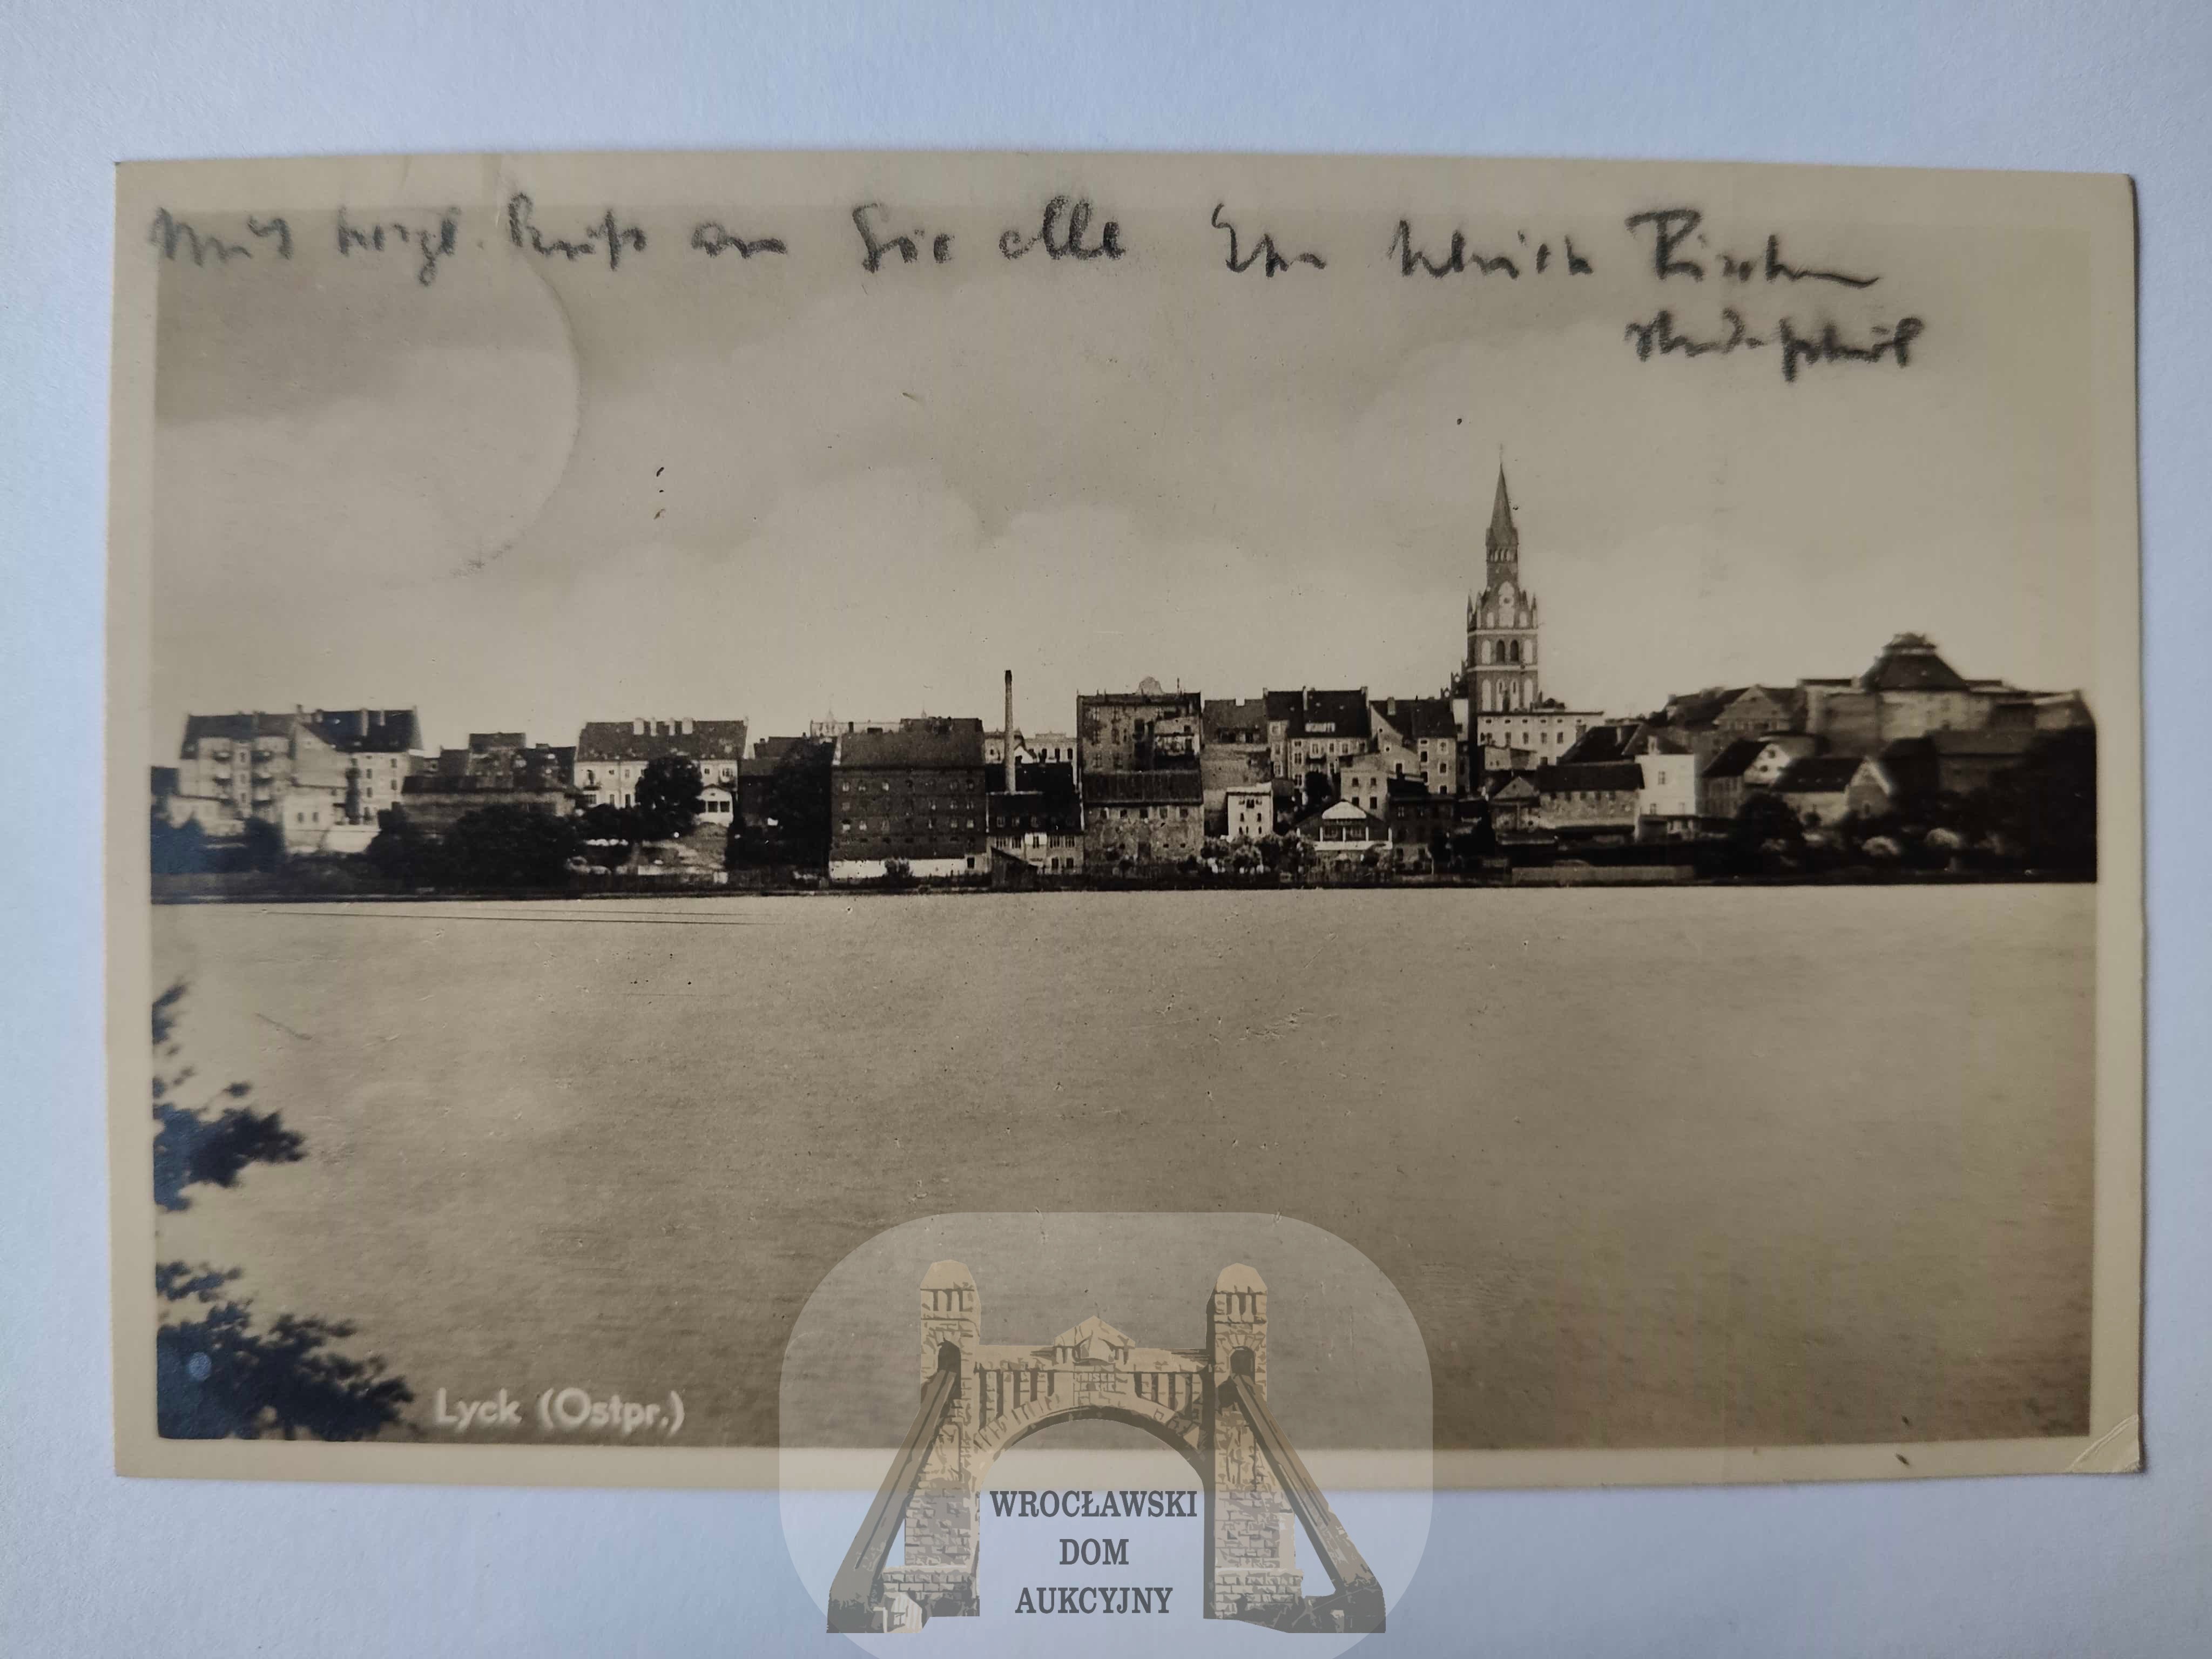 Mit herzl. Gruß an Sie alle Ihr Ulrich
Lyck (Ostpr.)
WROCŁAWSKI
DOM
AUKCYJNY